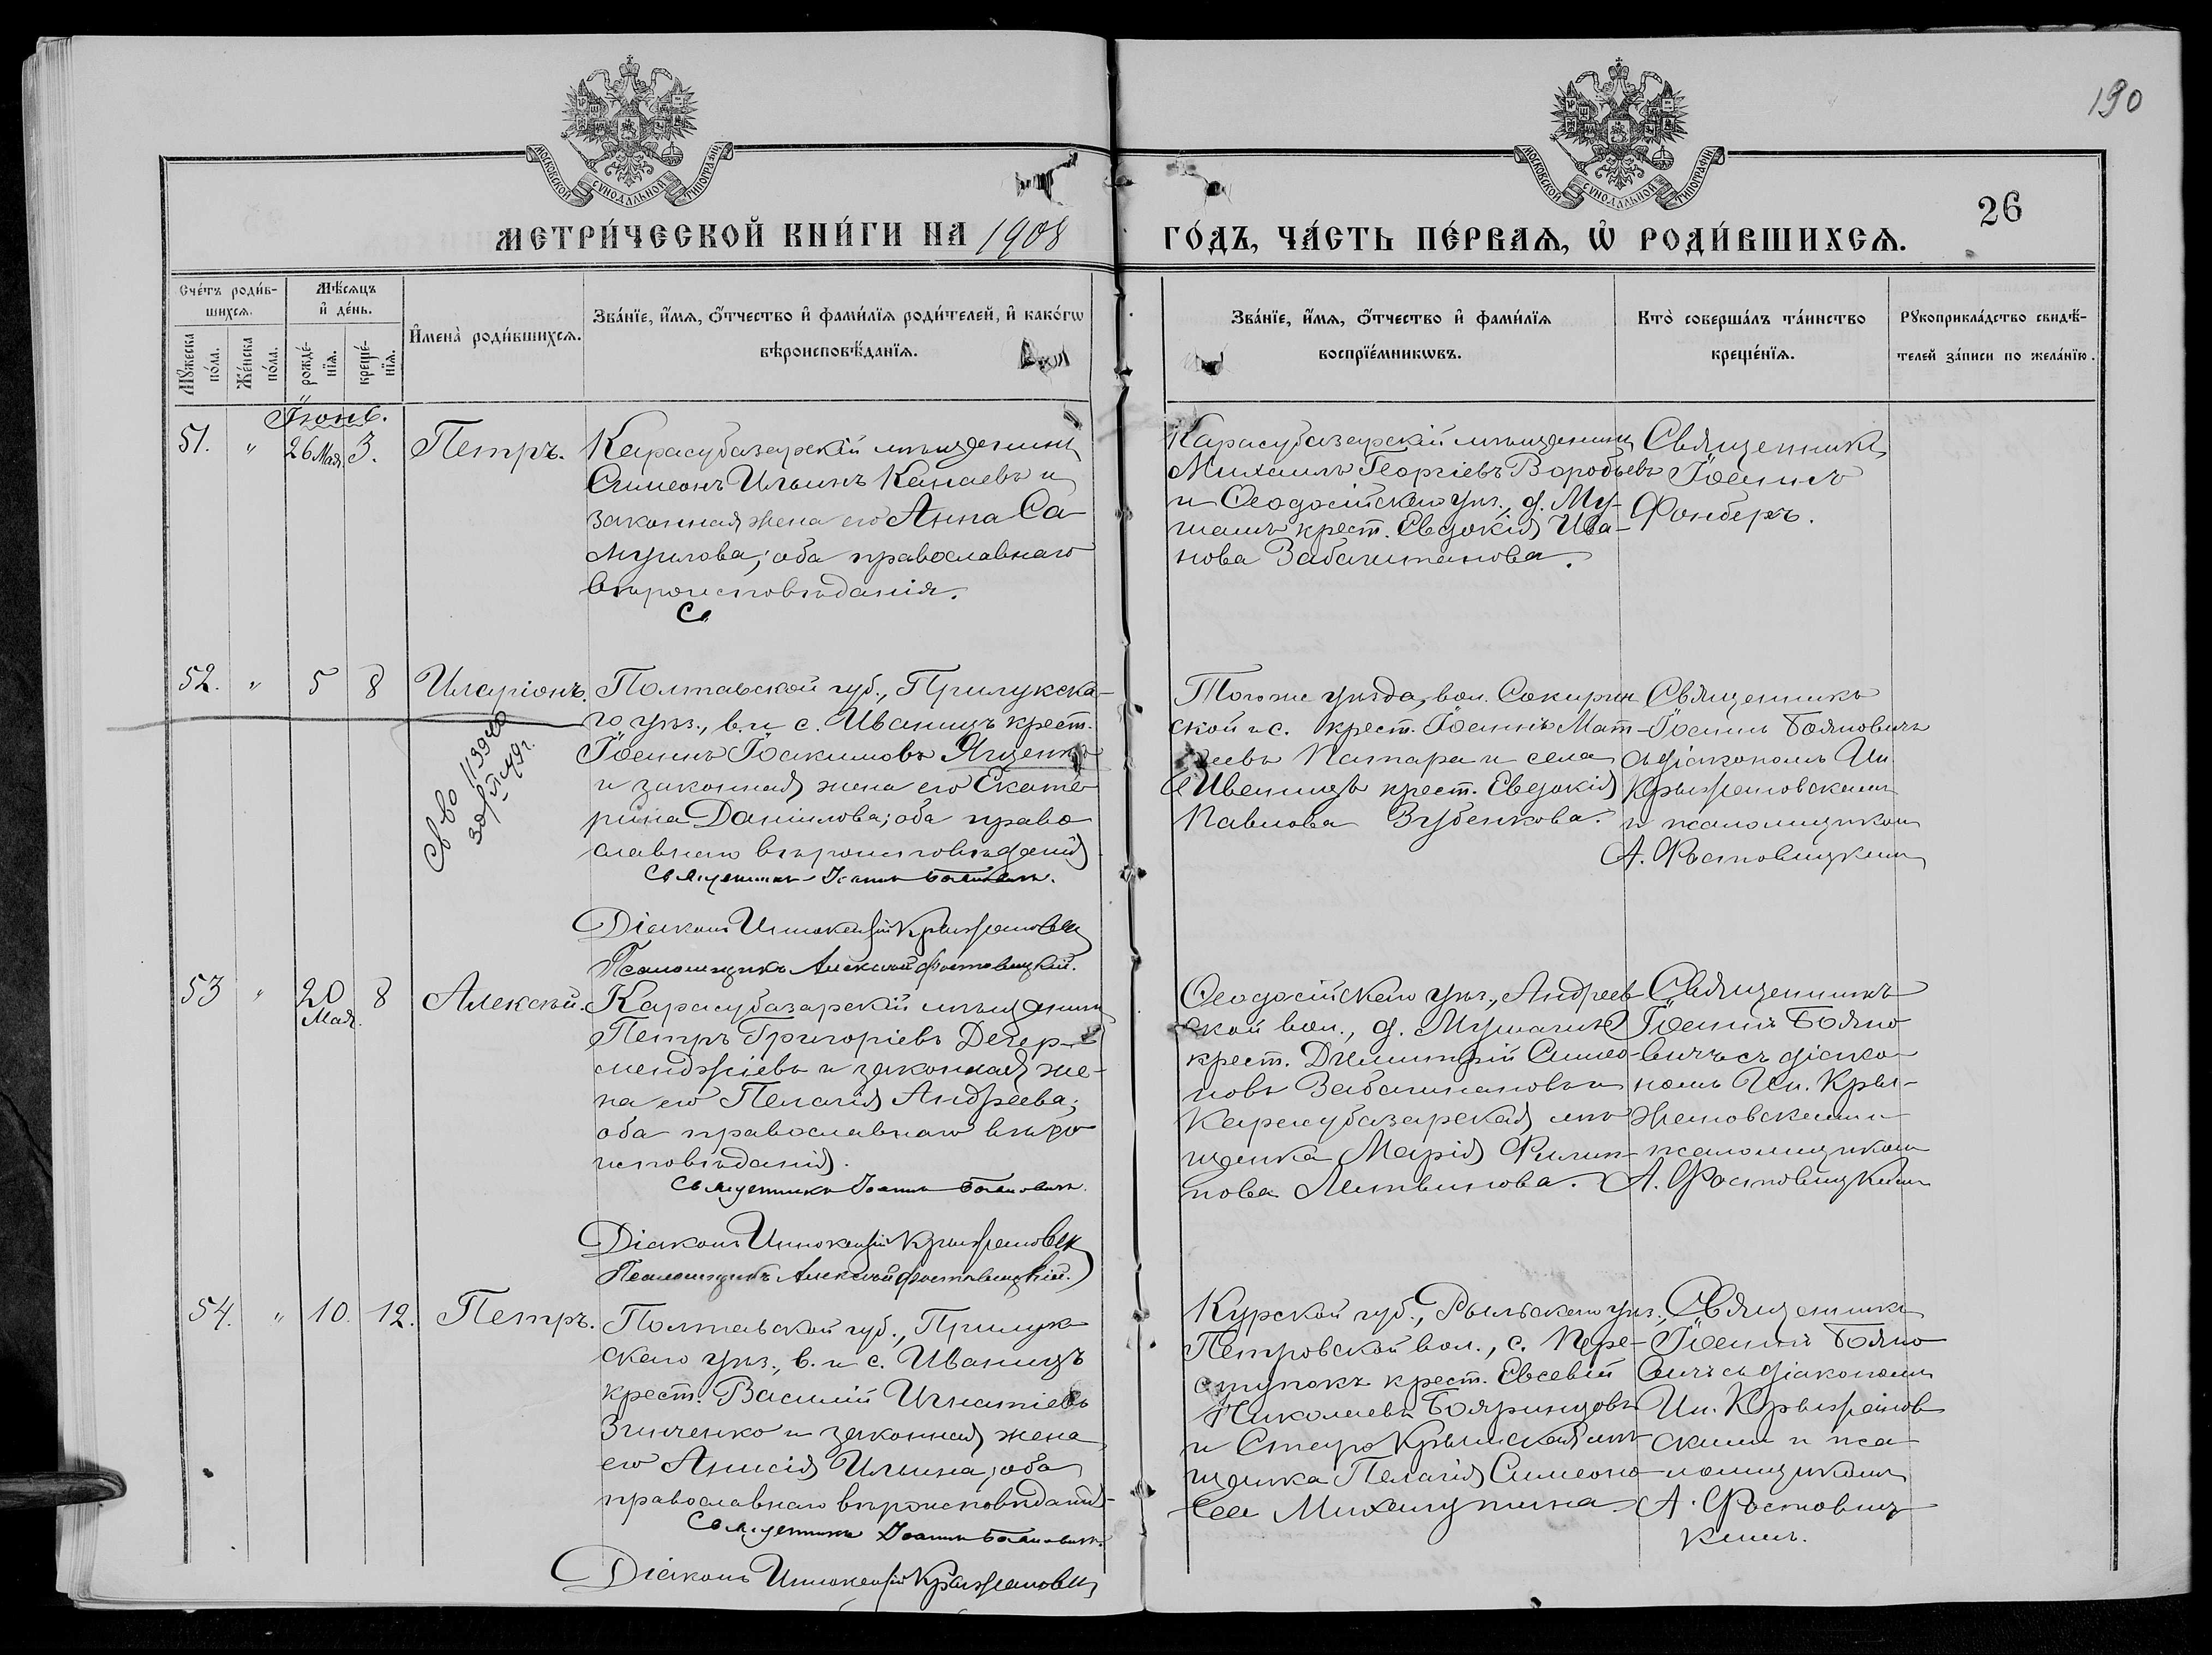 190
МОСКОВСКОЙ СѴНОДАЛЬНОЙ ТИПОГРАФІИ
МОСКОВСКОЙ СѴНОДАЛЬНОЙ ТИПОГРАФІИ
26
МЕТРИ́ЧЕСКОЙ КНИ́ГИ НА 1908
ГО́ДЪ, ЧА́СТЬ ПЕ́РВАѦ, Ѡ҆ РОДИ́ВШИХСѦ.
Сче́тъ роди́в-
шихсѧ.
Мѣ́сѧцъ
и҆ де́нь.
Мꙋ́жеска
по́ла.
Же́нска
по́ла.
рожде́-
нїѧ.
креще́-
нїѧ.
И҆мена̀ роди́вшихсѧ.
Зва́нїе, и҆́мѧ, ѻ҆́тчество и҆ фами́лїѧ роди́телей, и҆ како́гѡ
вѣроисповѣ́данїѧ.
Зва́нїе, и҆́мѧ, ѻ҆́тчество и҆ фами́лїѧ
воспрїе́мникѡвъ.
Кто̀ соверша́лъ та́инство
креще́нїѧ.
Рꙋкоприкла́дство свидѣ́-
телей за́писи по жела́нїю.
Іюнь.
51. " 26 Мая. 3. Петръ.
Карасубазарскій мѣщанинъ
Симеонъ Ильинъ Канаевъ и
законная жена его Анна Са-
муилова; оба православнаго
вѣроисповѣданія.
Карасубазарскій мѣщанинъ
Михаилъ Георгіевъ Воробьевъ
и Ѳеодосійскаго уѣз., д. Му-
шашъ крест. Евдокія Ива-
нова Забаштанова.
Священникъ
Іоаннъ
Фонберъ.
52. " 5 8 Иларіонъ.
Полтавской губ., Прилукска-
го уѣз., в. и с. Иваницъ крест.
Іоаннъ Іоакимовъ Ященко
и законная жена его Екате-
рина Даніилова; оба право
славнаго вѣроисповѣданія
Священникъ Іоаннъ Бояновичъ.
Діаконъ Иннокентій Крыжановск
Псаломщикъ Алексѣй Фостовицкій.
Св во
Того же уѣзда, вол. Сокирин
ской и с. крест. Іоаннъ Мат-
ѳеевъ Катара и села
Иваницъ крест. Евдокія
Павлова Зубенкова.
Священникъ
Іоаннъ Бояновичъ
съ діакономъ Ин.
Крыжановскимъ
и псаломщикомъ
А. Фостовицкимъ
53 " 20 Мая. 8 Алексѣй.
Карасубазарскій мѣщанинъ
Петръ Григоріевъ Дегер-
менджіевъ и законная же-
на его Пелагія Андреева;
оба православнаго вѣро
исповѣданія.
Священникъ Іоаннъ Бояновичъ.
Діаконъ Иннокентій Крыжановск
Псаломщикъ Алексѣй Фостовицкій.
Ѳеодосійскаго уѣз., Андреев
ской вол., д. Мушашъ
крест. Димитрій Симео-
новъ Забаштановъ и
Карасубазарская мѣ
щанка Марія Филип-
пова Литвинова.
Священникъ
Іоаннъ Бояно
вичъ съ діако-
номъ Ин. Кры-
жановскимъ и
псаломщикомъ
А. Фостовицкимъ
54. " 10. 12. Петръ.
Полтавской губ., Прилук
скаго уѣз., в. и с. Иваницъ
крест. Василій Игнатіевъ
Зинченко и законная жена
его Анисія Ильина; оба
православнаго вѣроисповѣданія
Священникъ Іоаннъ Бояновичъ.
Діаконъ Иннокентій Крыжановск
Курской губ., Рыльскаго уѣз.,
Петровской вол., с. Пере-
ступокъ крест. Евсевій
Николаевъ Бояринцовъ
и Старо Крымская мѣ
щанка Пелагія Симеоно
ва Михалутина.
Священникъ
Іоаннъ Бояно
вичъ съ діакономъ
Ин. Крыжанов
скимъ и пса-
ломщикомъ
А. Фостовиц
кимъ.